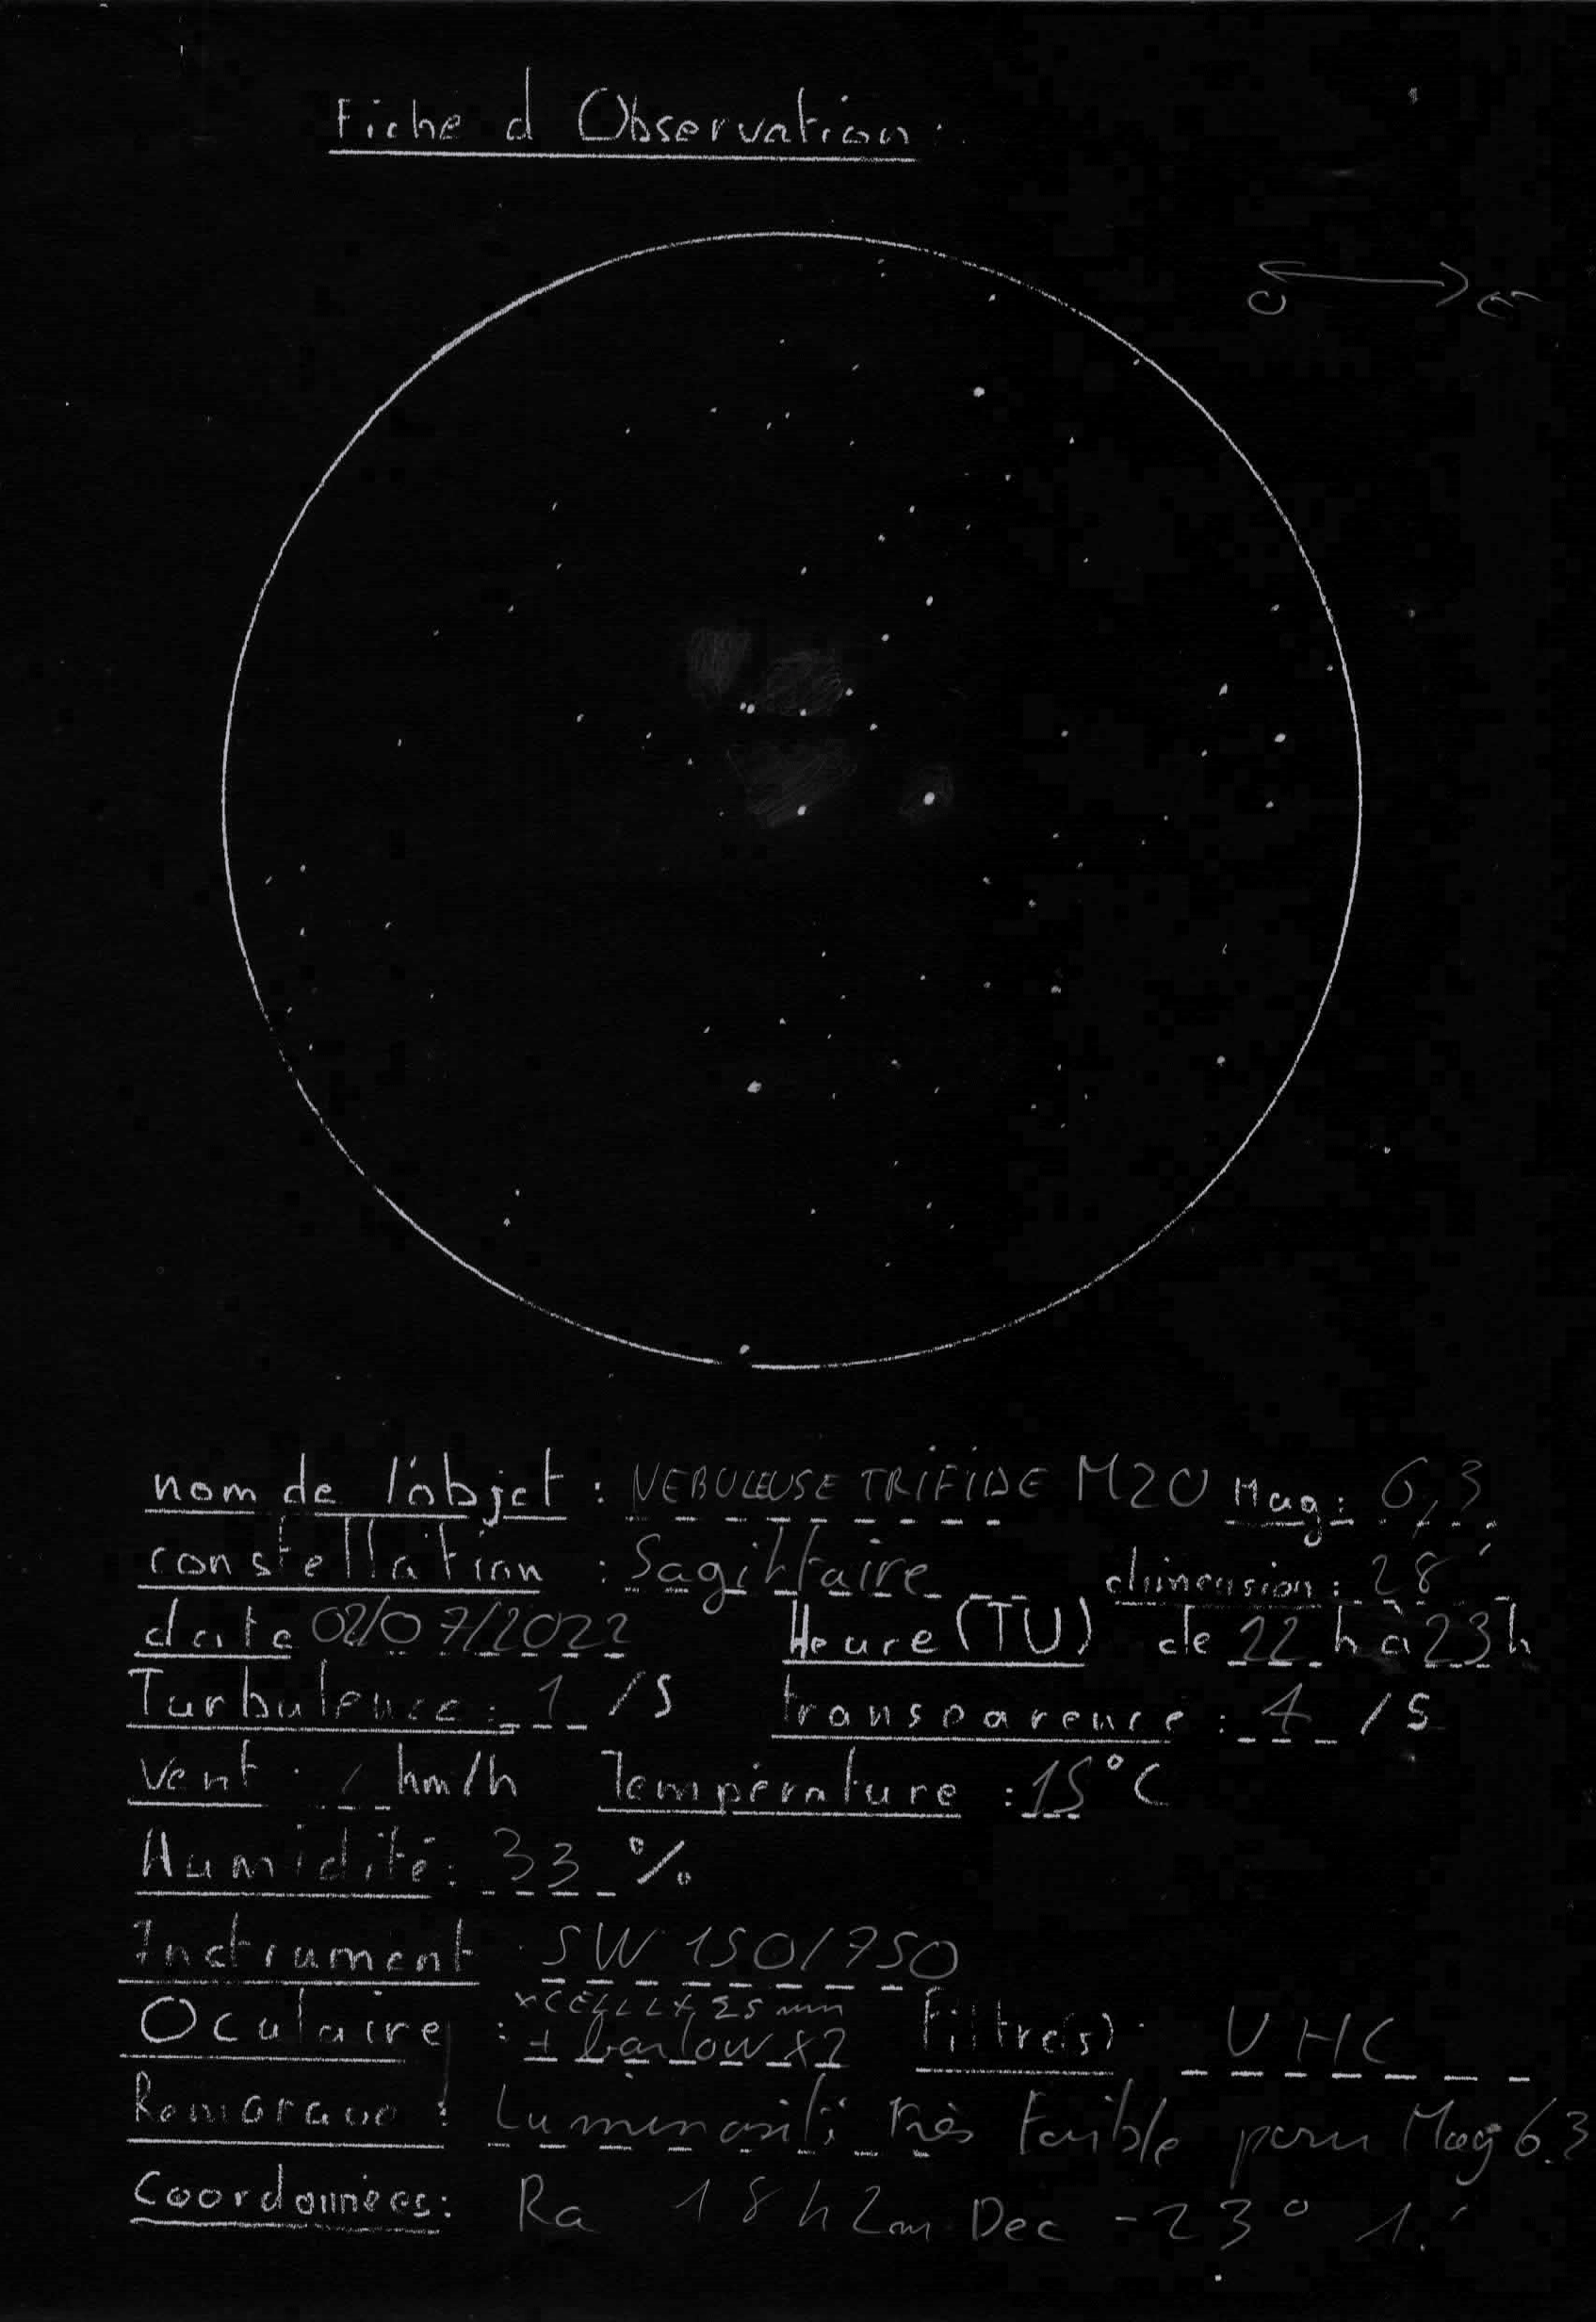 Fiche d Observation
O
nom de l'objet : NEBULEUSE TRIFIDE M20 Mag: 6,3
constellation : Sagittaire dimension: 28'
date 02/07/2022 Heure (TU) de 22 h à 23 h
Turbulence : 1 /5 transparence : 4 /5
Vent : / km/h Température : 15°C
Humidité: 33 %
Instrument : SW 150/750
Oculaire : 25 mm
+ barlow x2 Filtre(s) : UHC
Remarque : Luminosité très faible pour Mag 6.3
Coordonnées: Ra 18h2m Dec -23° 1'